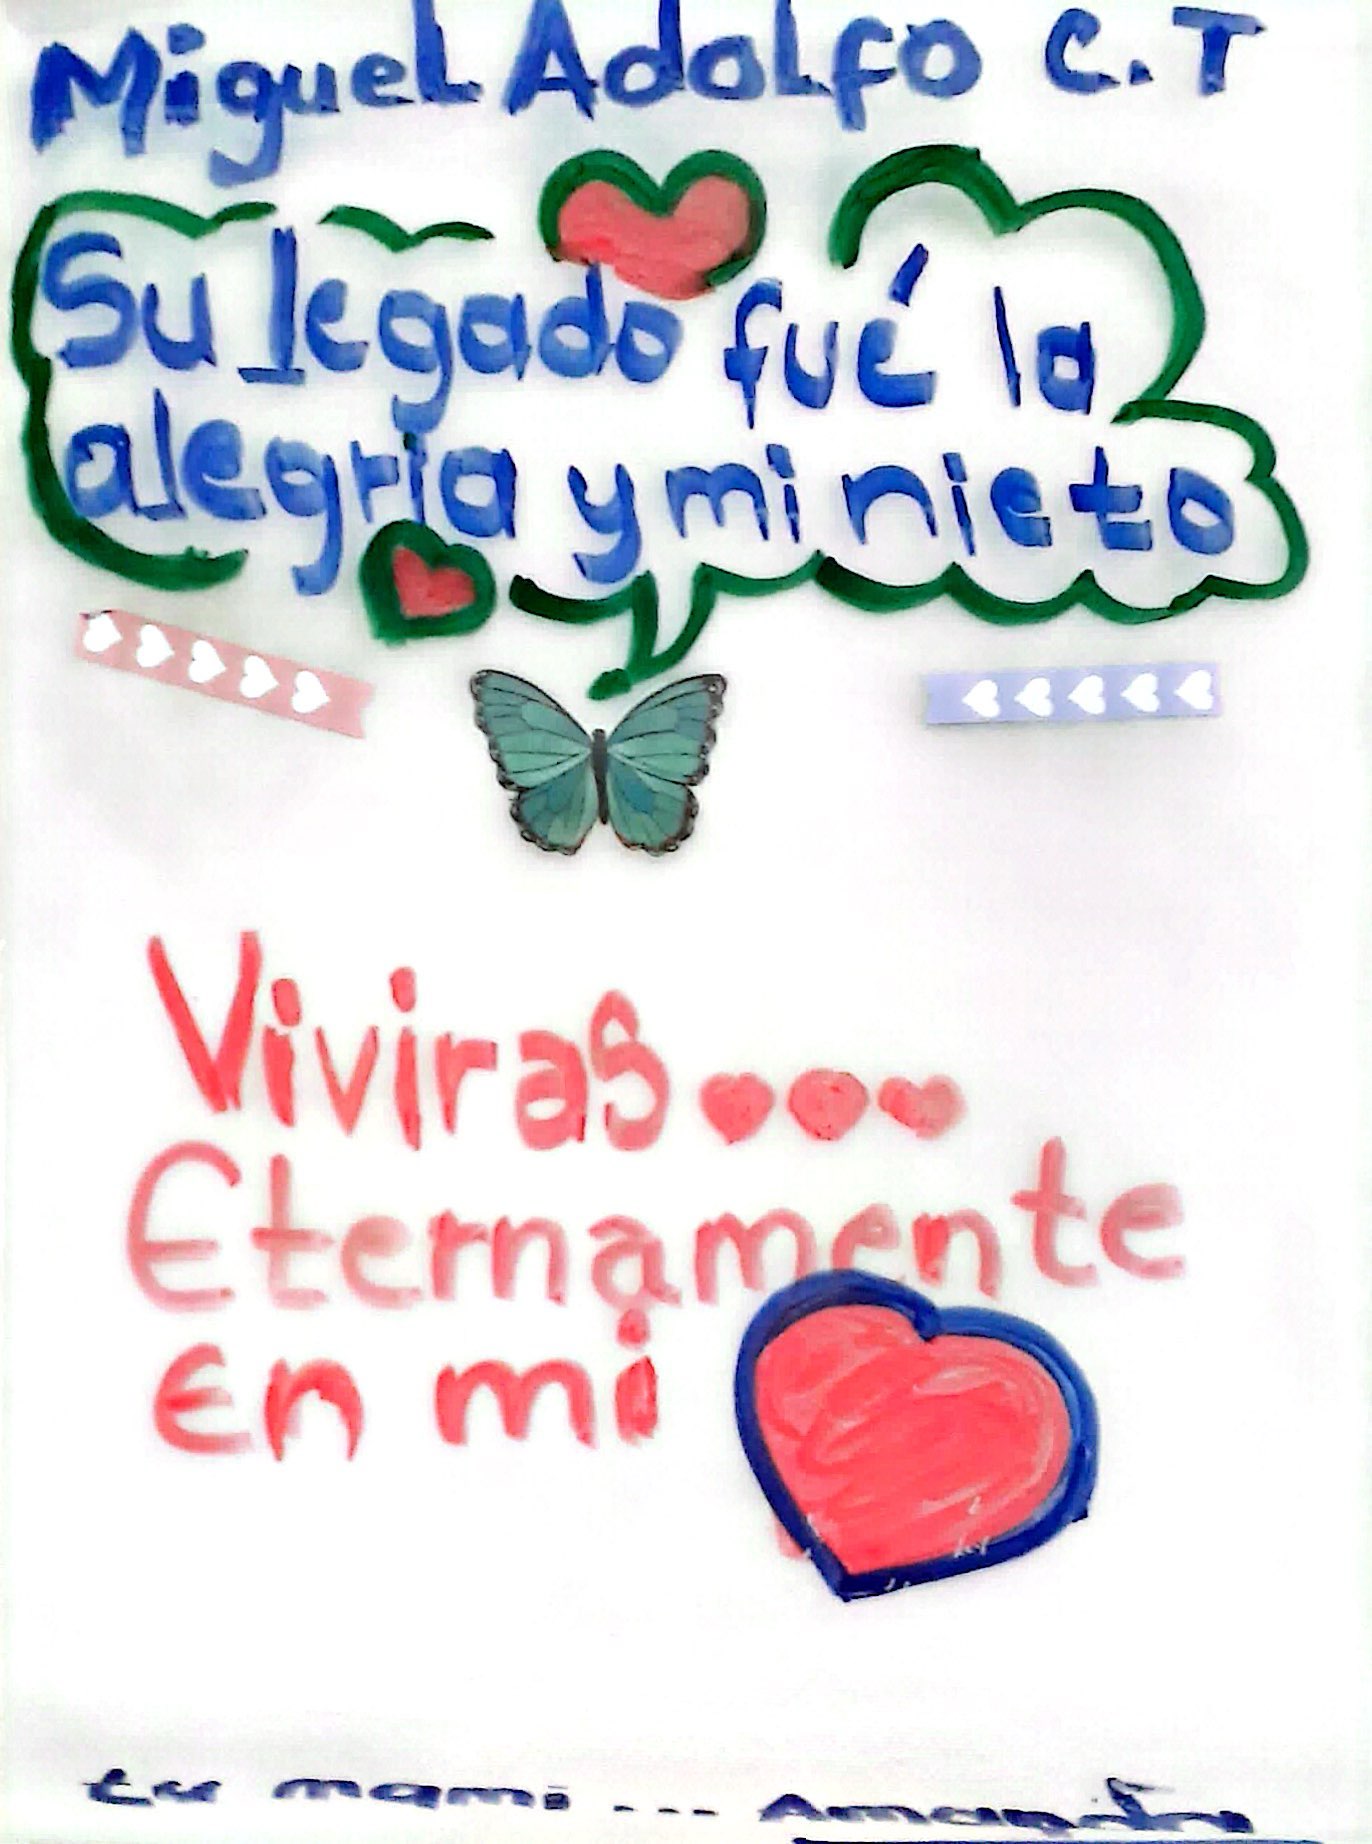 Miguel Adolfo C.T
Su legado fué la
alegria y mi nieto
Viviras...
Eternamente
En mi
tu mami ... Amanda